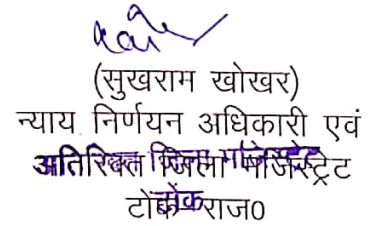 (सुखराम खोखर)
न्याय निर्णयन अधिकारी एवं
अतिरिक्त जिला मजिस्ट्रेट
टोंक राज0